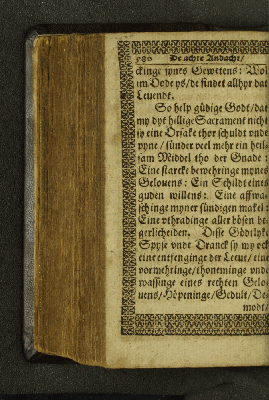 580 De achte Andacht/
ckinge synes Gewetens: Wol
im Dode ys/de findet allhyr dat
Leuendt.
So help gůdige Godt/dat
my dyt hillige Sacrament nicht
sy eine Orsake thor schuldt vnde
pyne/sünder veel mehr ein heil-
sam Middel tho der Gnade:
Eine starcke bewehringe mynes
Gelouens: Ein Schildt eines
guden willens: Eine affwa-
schinge myner sündigen makel:
Eine vthradinge aller bösen be-
gerlicheiden. Disse Gödtlyke
Spyse vnde Dranck sy my ock
eine entfenginge der Leeue/eine
vormehringe/thoneminge vnde
wassinge eines rechten Gelo-
uens/Höpeninge/Gedult/De-
modt/